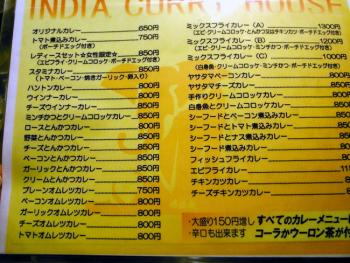 INDIA CURRY HOUSE
オリジナルカレー 650円
トマト煮込みカレー 750円
(ボーチドエッグ付き)
レディースセット☆女性限定☆ 850円
(エビフライ・クリームコロッケ・ボーチドエッグ付き)
スタミナカレー 850円
(トマト・ベーコン・焼きガーリック・納入り)
ハントンカレー 800円
ウインナーカレー 800円
チーズウインナーカレー 850円
ミンチかつとクリームコロッケカレー 850円
ロースとんかつカレー 800円
野菜とんかつカレー 850円
チーズとんかつカレー 850円
ベーコンとんかつカレー 850円
ガーリックとんかつカレー 850円
クリームとんかつカレー 850円
プレーンオムレツカレー 750円
ベーコンオムレツカレー 800円
ガーリックオムレツカレー 800円
チーズオムレツカレー 800円
トマトオムレツカレー 800円
ミックスフライカレー (A) 1300円
(エビ・クリームコロッケ・とんかつ又はチキンカツ・ボーチドエッグ付き)
ミックスフライカレー (B) 1200円
(エビ・クリームコロッケ・ミンチかつ・ボーチドエッグ付き)
ミックスフライカレー (C)
(白身魚・クリームコロッケ・ミンチかつ・ボーチドエッグ付き)
ヤサタマベーコンカレー
ヤサタマチーズカレー
手作りクリームコロッケカレー 800円
白身魚とクリームコロッケカレー
シーフードとベーコン煮込みカレー
シーフードとトマト煮込みカレー
シーフードとナス煮込みカレー
シーフード煮込みカレー
フィッシュフライカレー
エビフライカレー
チキンカツカレー
チーズチキンカツカレー
・大盛り150円増し
・辛口も出来ます
すべてのカレーメニュー
コーラかウーロン茶が付